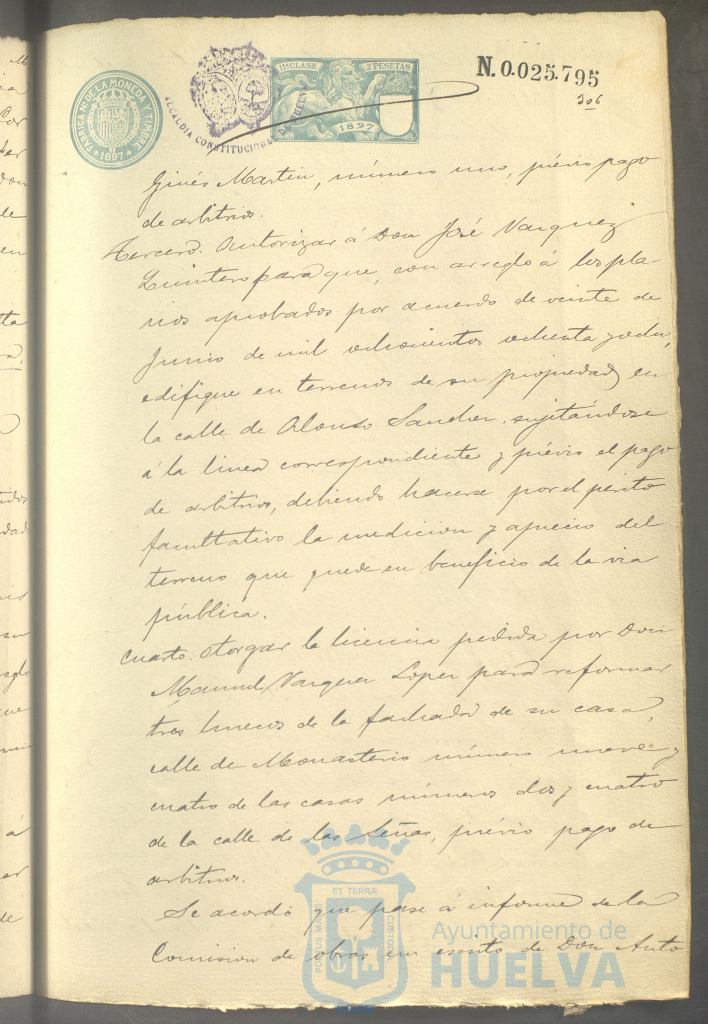 FABRICA NDE LA MONEDA Y TIMBRE
1897
ALCALDIA CONSTITUCIONAL DE HUELVA
11ª CLASE 2 PESETAS
1897
N.0.025.795
306
Ginés Martin, número uno, prévio pago
de arbitrios.
Tercero. Autorizar á Don José Vazquez
Quintero para que, con arreglo á los pla
nos aprobados por acuerdo de veinte de
Junio de mil ochocientos ochenta y ocho,
edifique en terrenos de su propiedad en
la calle de Alonso Sanchez, sujetándose
á la linea correspondiente y prévio el pago
de arbitrios, debiendo hacerse por el perito
facultativo la medicion y aprecio del
terreno que quede en beneficio de la via
pública.
Cuarto. Otorgar la licencia pedida por Don
Manuel Vazquez Lopez para reformar
tres huecos de la fachada de su casa,
calle de Monasterio número nueve y
cuatro de las casas números dos y cuatro
de la calle de las Señas, prévio pago de
arbitrios.
Se acordó que pase á informe de la
Comision de obras un escrito de Don Anto
PORTUS MARIS ET TERRÆ CUSTODIA
Ayuntamiento de
HUELVA